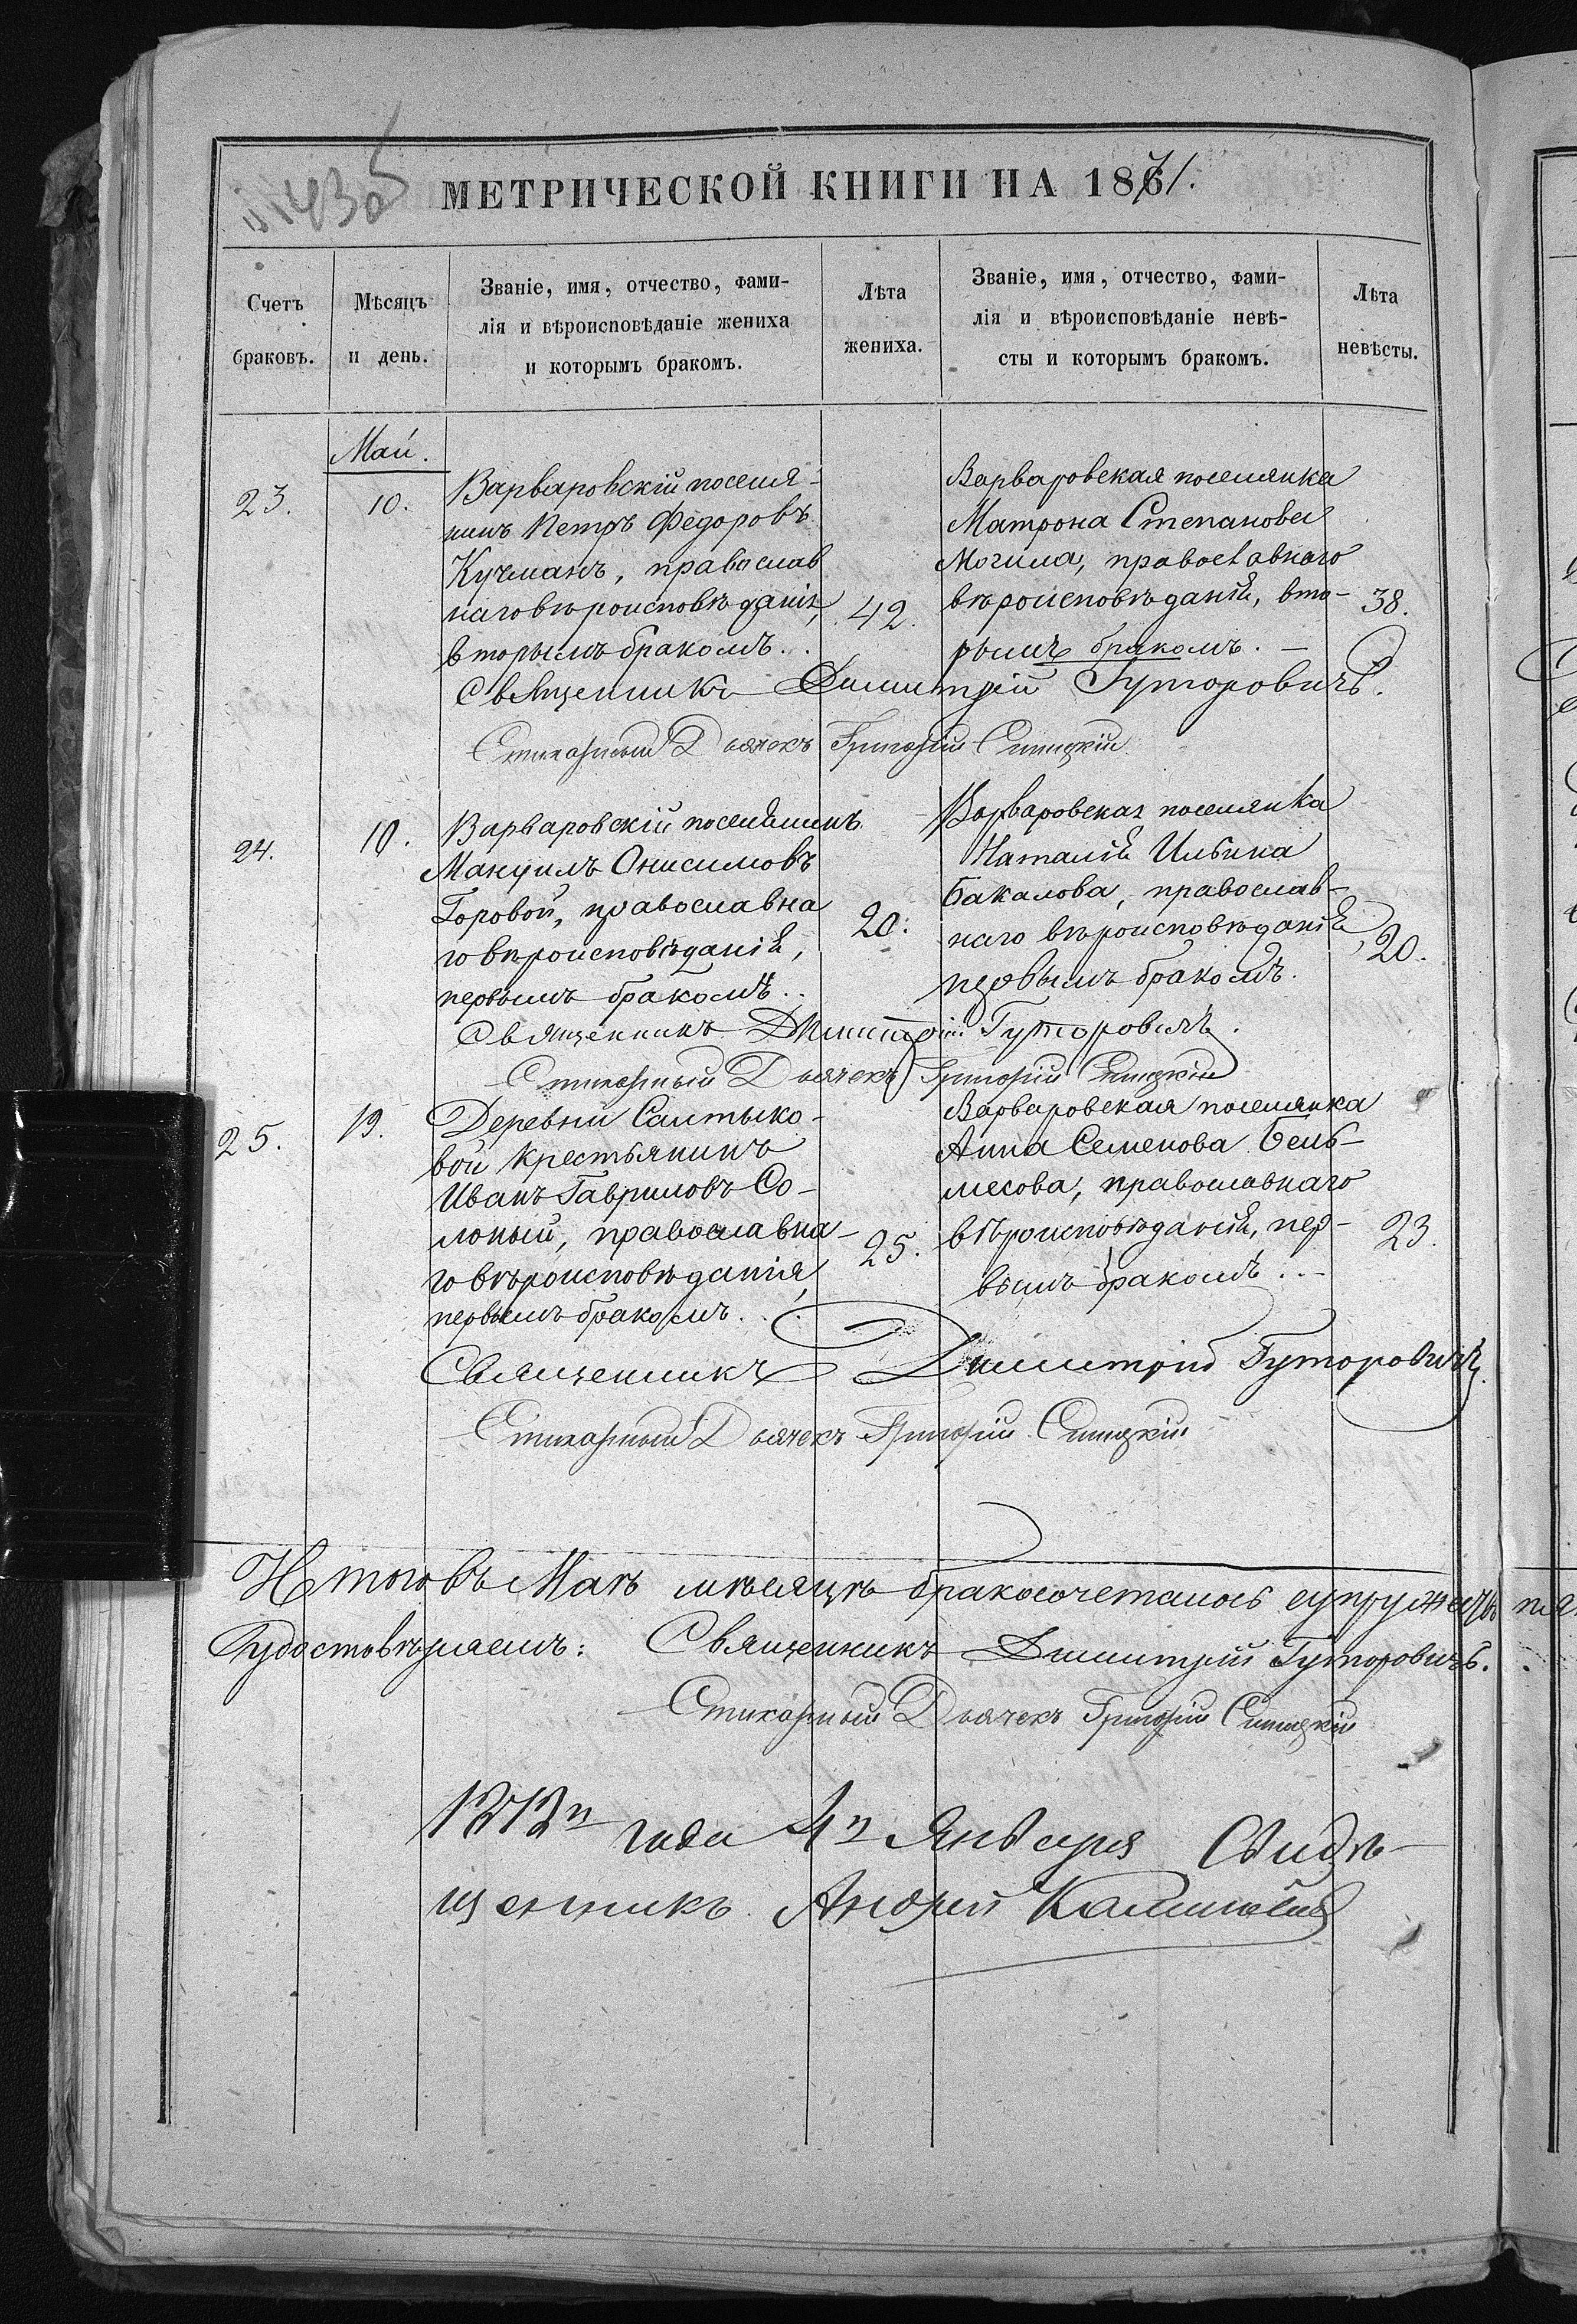 МЕТРИЧЕСКОЙ КНИГИ НА 1871.
Счетъ браковъ.
Мѣсяцъ и день.
Званіе, имя, отчество, фами-
лія и вѣроисповѣданіе жениха
и которымъ бракомъ.
Лѣта жениха.
Званіе, имя, отчество, фами-
лія и вѣроисповѣданіе невѣ-
сты и которымъ бракомъ.
Лѣта невѣсты.
Май.
23.
10.
Варваровскій поселя-
нинъ Петръ Федоровъ
Кучманъ, православ
наго вѣроисповѣданія,
вторымъ бракомъ.
42.
Варваровская поселянка
Матрона Степанова
Могила, православнаго
вѣроисповѣданія, вто-
рымъ бракомъ.
38.
Священникъ Димитрій Гуторовичъ.
Стихарный Дьячекъ Григорій Синицкій
24.
10.
Варваровскій поселянинъ
Мануилъ Онисимовъ
Горовой, православна
го вѣроисповѣданія,
первымъ бракомъ.
20.
Варваровская поселянка
Наталія Ильина
Бакалова, православ-
наго вѣроисповѣданія,
первымъ бракомъ.
20.
Священникъ Димитрій Гуторовичъ.
Стихарный Дьячекъ Григорій Синицкій
25.
19.
Деревни Салтыко-
вой крестьянинъ
Иванъ Гавриловъ Со-
лоный, православна-
го вѣроисповѣданія,
первымъ бракомъ.
25.
Варваровская поселянка
Анна Семенова Бель-
месова, православнаго
вѣроисповѣданія, пер-
вымъ бракомъ.
23.
Священникъ Димитрій Гуторовичъ
Стихарный Дьячекъ Григорій Синицкій
Итого въ Маѣ мѣсяцѣ бракосочеталось супружествъ
удостовѣряемъ: Священникъ Димитрій Гуторовичъ.
Стихарный Дьячекъ Григорій Синицкій
года 4 Января
щенникъ Андрей